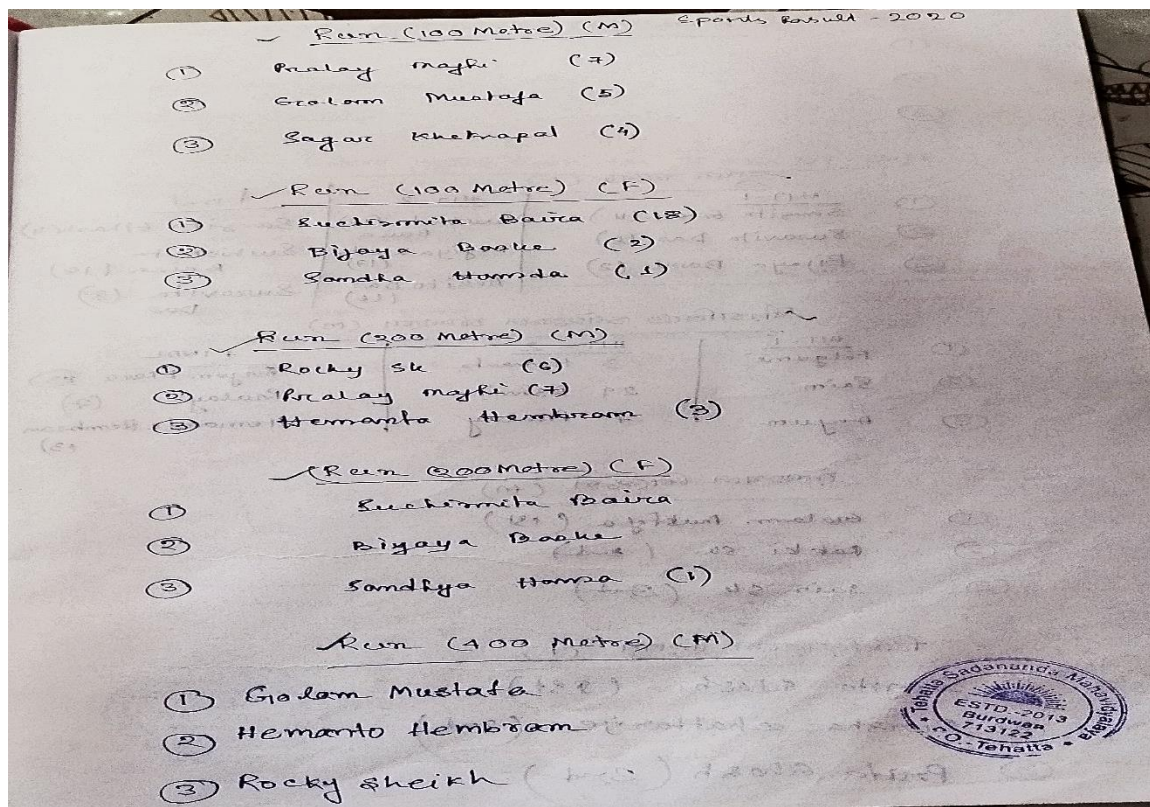 Run (100 Metre) (M) Sports Result - 2020
① Pralay majhi (7)
② Golam Mustafa (5)
③ Sagar Khetrapal (4)
Run (100 Metre) (F)
① Suchismita Baira (18)
② Bijaya Baske (2)
③ Sandha Hamda (1)
Run (200 Metre) (M)
① Rocky Sk (6)
② Pralay majhi (7)
③ Hemanta Hembram (3)
Run (200 Metre) (F)
① Suchismita Baira
② Biyaya Baske
③ Sandhya Hamsa (1)
Run (400 Metre) (M)
① Golam Mustafa
② Hemanto Hembram
③ Rocky Sheikh
Tehatta Sadananda Mahavidyalaya
ESTD.-2013
Burdwan
713122
P.O.-Tehatta